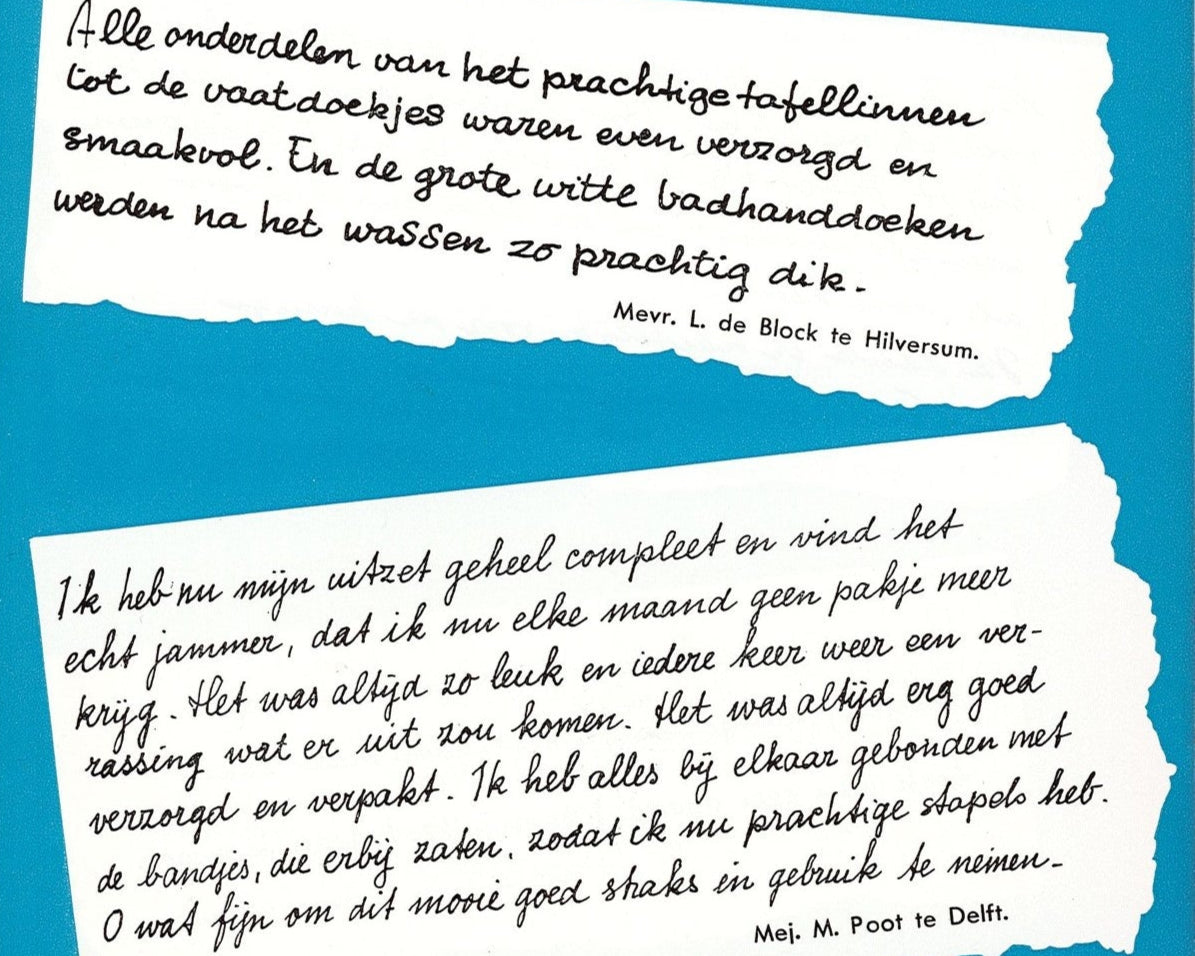 Alle onderdelen van het prachtige tafellinnen
tot de vaatdoekjes waren even verzorgd en
smaakvol. En de grote witte badhanddoeken
werden na het wassen zo prachtig dik.
Mevr. L. de Block te Hilversum.
Ik heb nu mijn uitzet geheel compleet en vind het
echt jammer, dat ik nu elke maand geen pakje meer
krijg. Het was altijd zo leuk en iedere keer weer een ver-
rassing wat er uit zou komen. Het was altijd erg goed
verzorgd en verpakt. Ik heb alles bij elkaar gebonden met
de bandjes, die erbij zaten, zodat ik nu prachtige stapels heb.
O wat fijn om dit mooie goed straks in gebruik te nemen.
Mej. M. Poot te Delft.